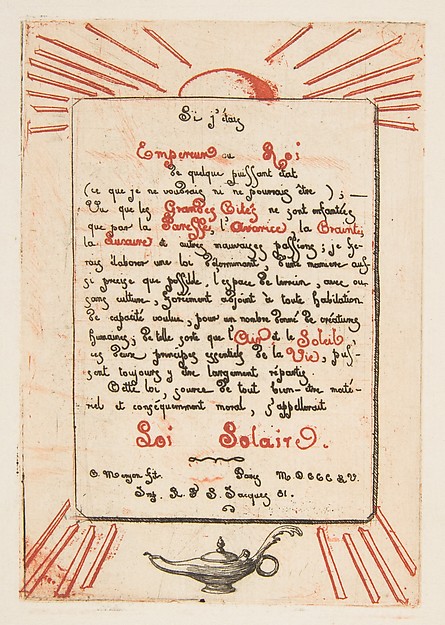 Si j'étais
Empereur ou Roi
de quelque puissant état
(ce que je ne voudrais ni ne pourrais être ) ; —
Vu que les Grandes Cités ne sont enfantées
que par la Paresse, l'Avarice, la Crainte,
la Luxure et autres mauvaises passions ; je fe-
rais élaborer une loi déterminant, d'une manière aus-
si précise que possible, l'espace de terrain, avec ou
sans culture, forcément adjoint à toute habitation
de capacité voulue, pour un nombre donné de créatures
humaines ; de telle sorte que l'Air et le Soleil,
ces deux principes essentiels de la Vie, puis-
sent toujours y être largement répartis.
Cette loi, source de tout bien-être maté-
riel et conséquemment moral, s'appellerait
Loi Solaire.
C. Meryon fit. Paris MDCCCLV.
Imp. R. N. S. Jacques 81.